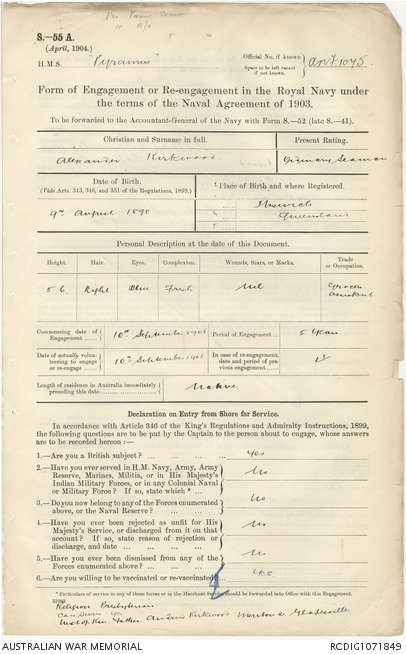 S.—55 A.
(April, 1904.)
H.M.S. "Pyramus"
Official No. if known
Space to be left vacant
if not known.
Form of Engagement or Re-engagement in the Royal Navy under
the terms of the Naval Agreement of 1903.
To be forwarded to the Accountant-General of the Navy with Form S.—52 (late S.—41).
Christian and Surname in full.
Present Rating.
Alexander Kirkwood
Ordinary Seaman
Date of Birth.
(Vide Arts. 343, 346, and 351 of the Regulations, 1899.)
Place of Birth and where Registered.
9th August 1890
Ipswich
Queensland
Personal Description at the date of this Document.
Height. Hair. Eyes. Complexion. Wounds, Scars, or Marks. Trade or Occupation.
5 6 Light Blue Fresh Nil Grocers Assistant
Commencing date of Engagement
10th September
Period of Engagement
5 Years
Date of actually volunteering to engage or re-engage
10th September
In case of re-engagement, date and period of previous engagement
1st
Length of residence in Australia immediately preceding this date
Native
Declaration on Entry from Shore for Service.
In accordance with Article 346 of the King's Regulations and Admiralty Instructions, 1899,
the following questions are to be put by the Captain to the person about to engage, whose answers
are to be recorded hereon :—
1.—Are you a British subject? Yes
2.—Have you ever served in H.M. Navy, Army, Army
Reserve, Marines, Militia, or in His Majesty's
Indian Military Forces, or in any Colonial Naval
or Military Force? If so, state which * No
3.—Do you now belong to any of the Forces enumerated
above, or the Naval Reserve? No
4.—Have you ever been rejected as unfit for His
Majesty's Service, or discharged from it on that
account? If so, state reason of rejection or
discharge, and date No
5.—Have you ever been dismissed from any of the
Forces enumerated above? No
6.—Are you willing to be vaccinated or re-vaccinated? Yes
* Particulars of service in any of these forces or in the Merchant Service should be forwarded into Office with this Engagement.
Religion Presbyterian
Can Swim yes
Next of Kin Father Andrew Kirkwood Gladesville
AUSTRALIAN WAR MEMORIAL
RCDIG1071849